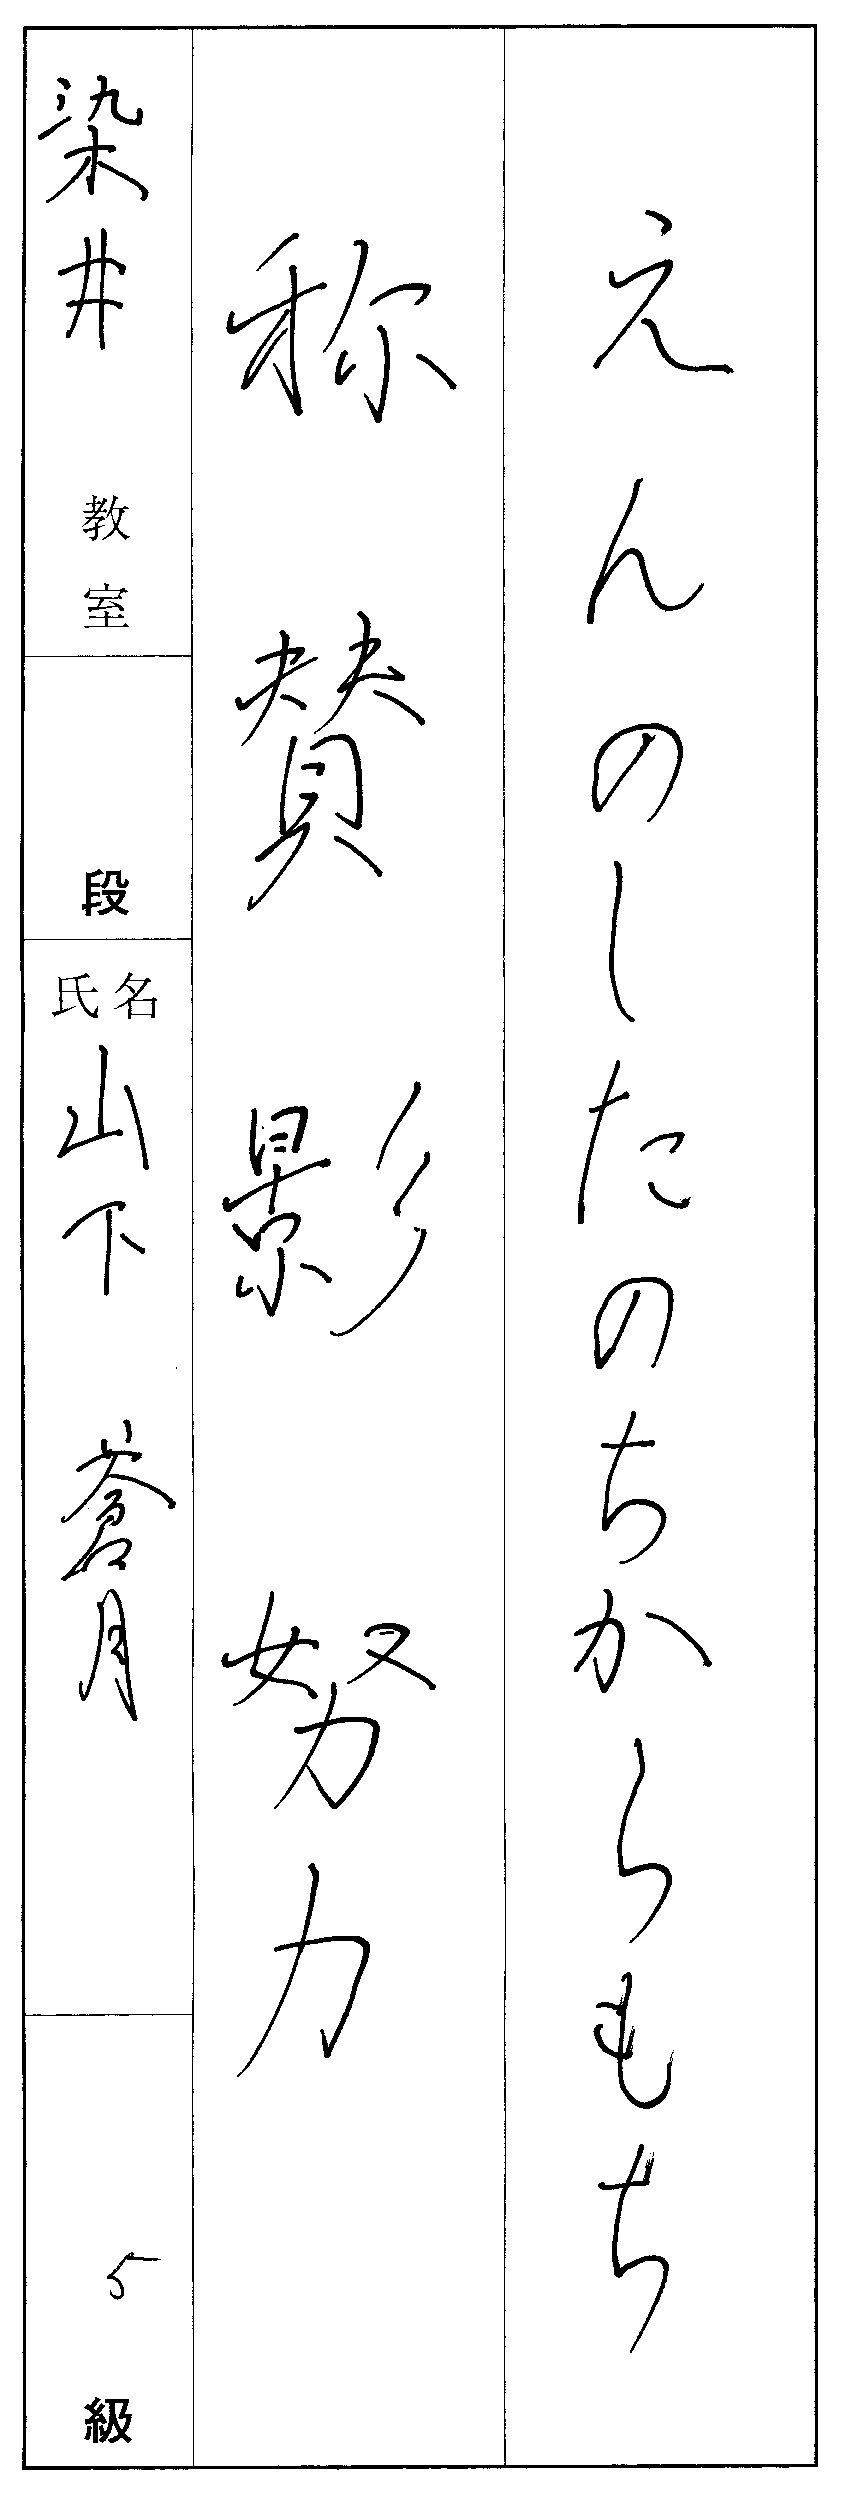 えんのしたのちからもち
称賛影努力
染井教室
段
氏名
山下蒼月
5級